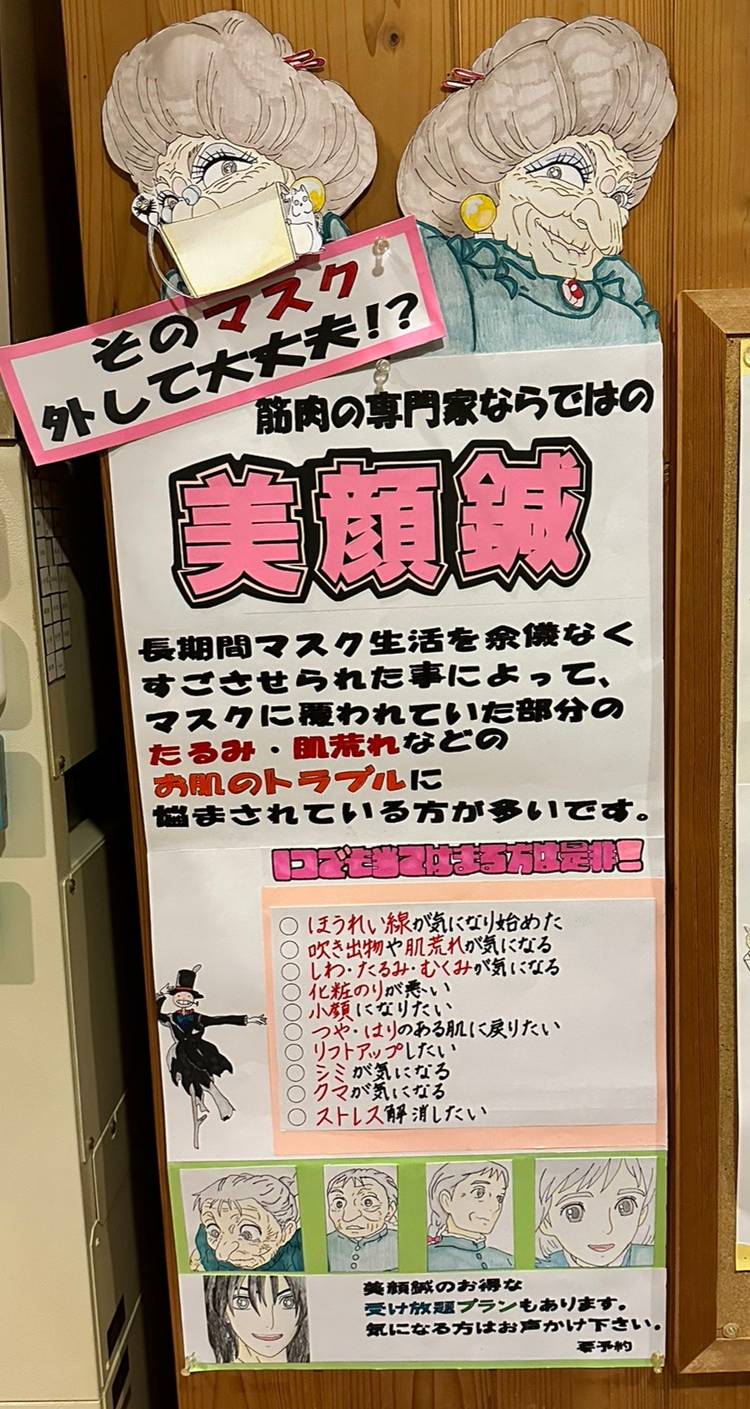 そのマスク
外して大丈夫!?
筋肉の専門家ならではの
美顔鍼
長期間マスク生活を余儀なく
すごさせられた事によって、
マスクに覆われていた部分の
たるみ・肌荒れなどの
お肌のトラブルに
悩まされている方が多いです。
1つでも当てはまる方は是非!
○ ほうれい線が気になり始めた
○ 吹き出物や肌荒れが気になる
○ しわ・たるみ・むくみが気になる
○ 化粧のりが悪い
○ 小顔になりたい
○ つや・はりのある肌に戻りたい
○ リフトアップしたい
○ シミが気になる
○ クマが気になる
○ ストレス解消したい
美顔鍼のお得な
受け放題プランもあります。
気になる方はお声かけ下さい。
要予約